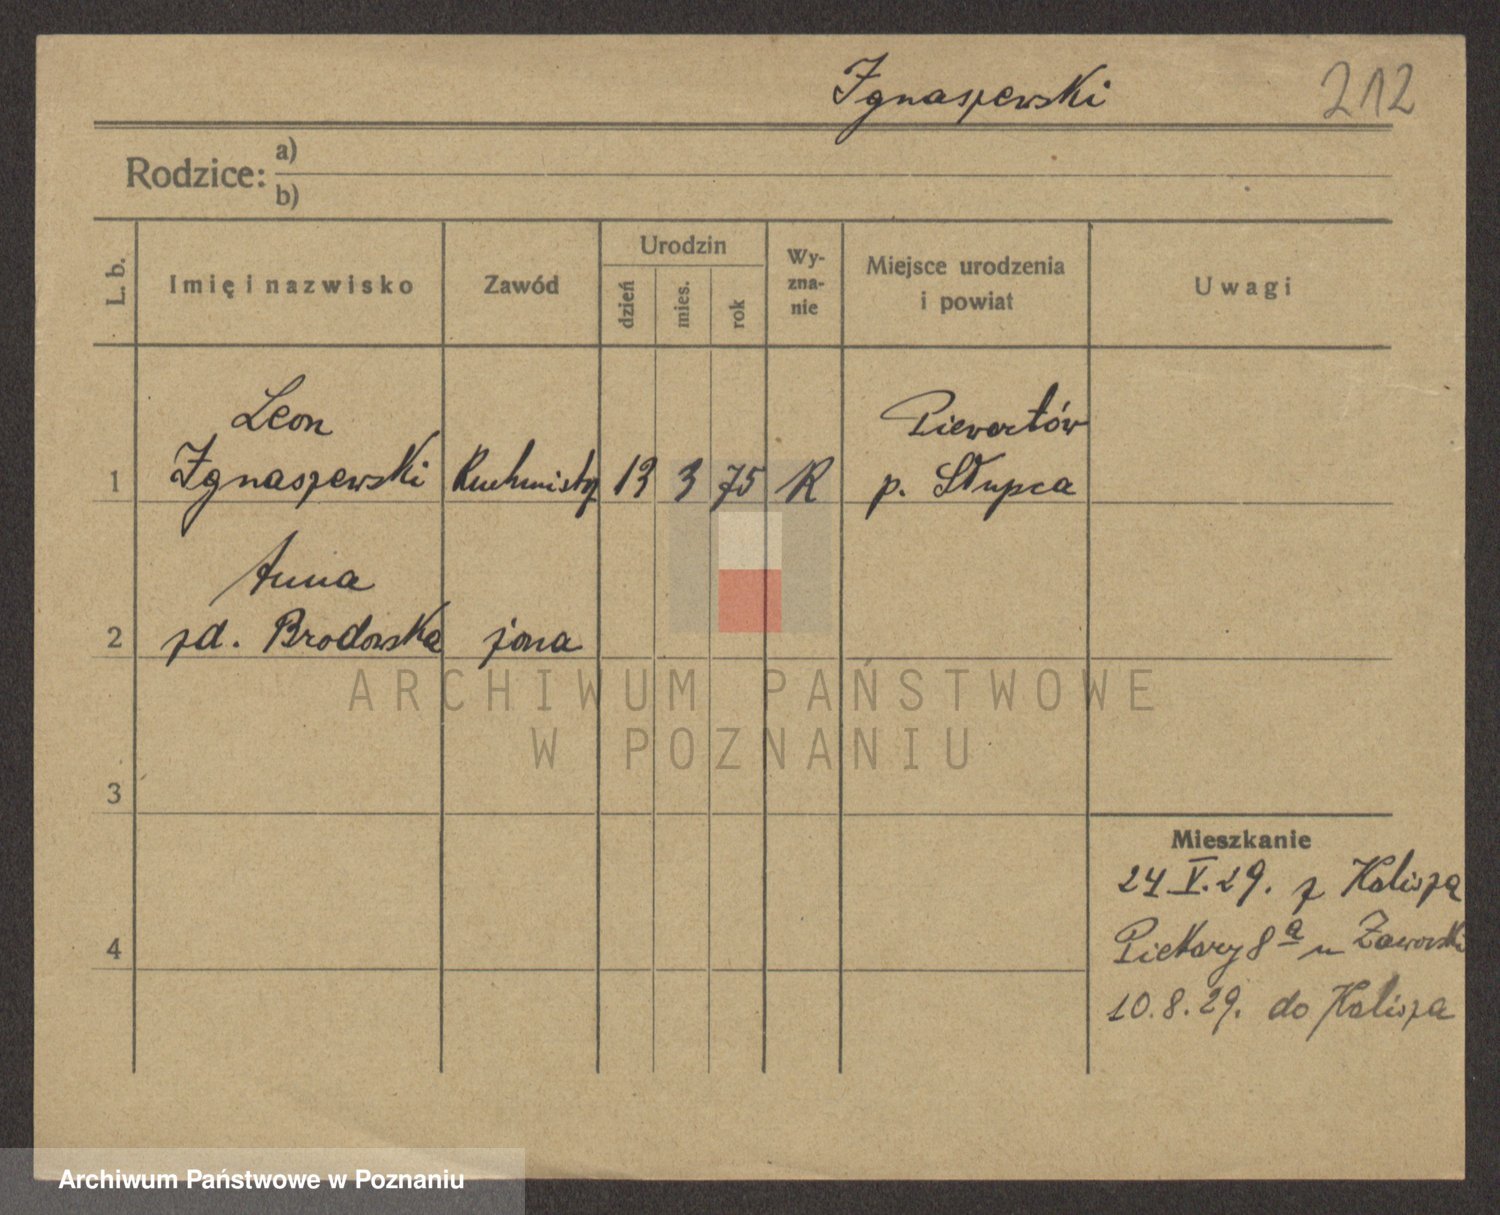 Ignaszewski 212
Rodzice: a)
b)
L. b.
Imię i nazwisko
Zawód
Urodzin
dzień
mies.
rok
Wy-
zna-
nie
Miejsce urodzenia
i powiat
Uwagi
Leon
Piewortów
1 Ignaszewski Kuchmistrz 13 3 75 R p. Słupca
Anna
2 zd. Brodowska żona
ARCHIWUM PAŃSTWOWE
W POZNANIU
3
Mieszkanie
24 V. 29. z Kalisza
4 Piekary 8 a u Zaworski
10.8.29. do Kalisza
Archiwum Państwowe w Poznaniu